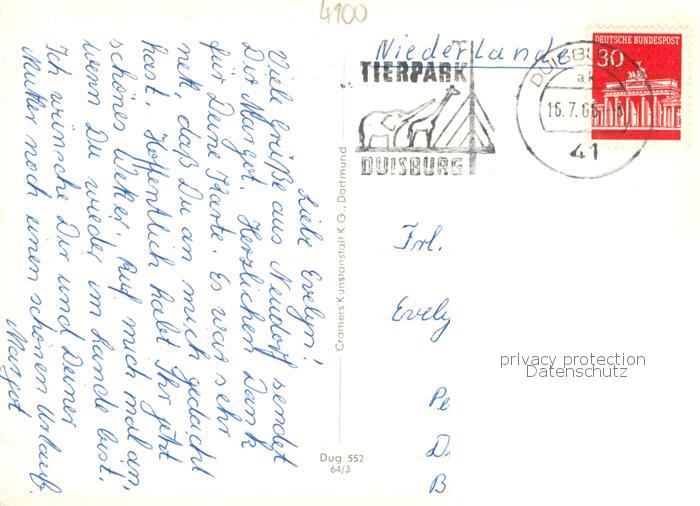 4100
Liebe Evelyn!
Viele Grüße aus Neudorf sendet
Dir Margot. Herzlichen Dank
für Deine Karte. Es war sehr
nett, daß Du an mich gedacht
hast. Hoffentlich habt Ihr jetzt
schönes Wetter. Ruf mich mal an,
wenn Du wieder im Lande bist.
Ich wünsche Dir und Deiner
Mutter noch einen schönen Urlaub.
Margot
Cramers Kunstanstalt K.G., Dortmund
Dug 552
64/3
Niederlande
TIERPARK
DUISBURG
DUISBURG
16.7.68
41
DEUTSCHE BUNDESPOST
30
Frl.
Evely
Pe
D.
B
privacy protection
Datenschutz